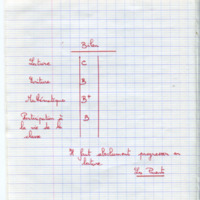 Bilan
Lecture C
Ecriture B
Mathématique B+
Participation à B
la vie de la
classe
Il faut absolument progresser en
lecture.
Les Parents